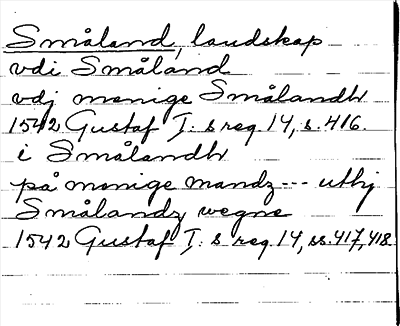 Småland, landskap
vdi Småland
vdj menige Smålandh
1542 Gustaf I:s reg. 14, s. 416.
i Smålandh
på menige mandz --- uthj
Smålandz wegne
1542 Gustaf I:s reg. 14, ss. 417, 418.